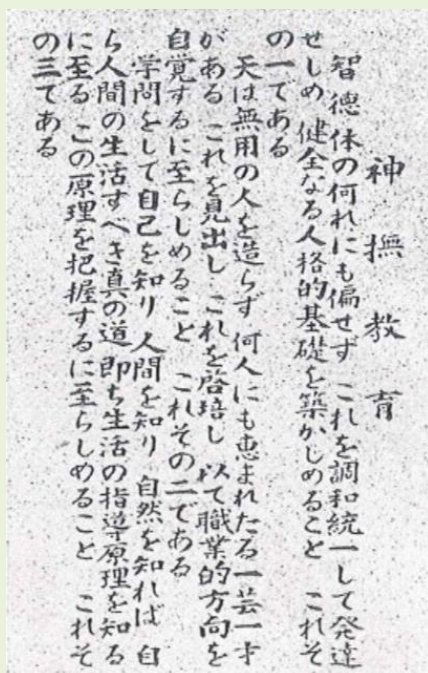 神撫教育
智徳体の何れにも偏せず これを調和統一して発達
せしめ 健全なる人格的基礎を築かしめること これそ
の一である
天は無用の人を造らず 何人にも恵まれたる一芸一才
がある これを見出し これを啓培し 以て職業的方向を
自覚するに至らしめること これその二である
学問をして自己を知り 人間を知り 自然を知れば 自
ら人間の生活すべき真の道即ち生活の指導原理を知る
に至る この原理を把握するに至らしめること これそ
の三である